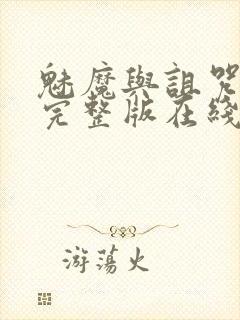 魅魔與詛咒
完整版在綫
游蕩火